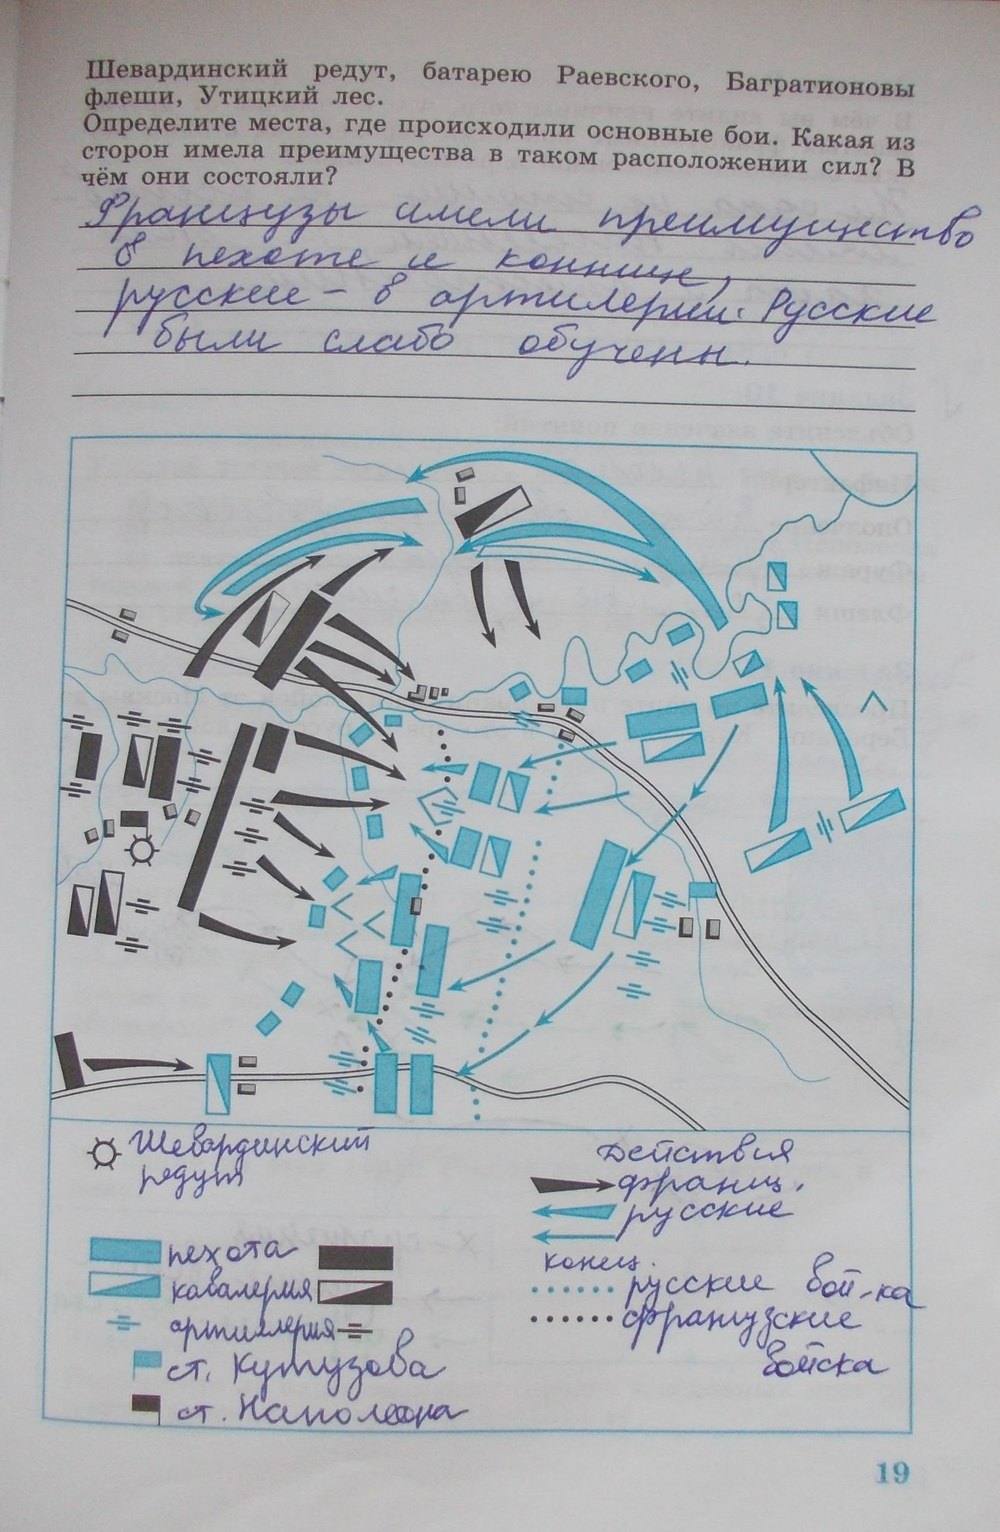 Шевардинский редут, батарею Раевского, Багратионовы
флеши, Утицкий лес.
Определите места, где происходили основные бои. Какая из
сторон имела преимущества в таком расположении сил? В
чём они состояли?
Французы имели преимущество
в пехоте и коннице,
русские – в артилерии. Русские
были слабо обучены.
Шевардинский
редут
пехота
кавалерия
артиллерия
ст. Кутузова
ст. Наполеона
Действия
франц.
русские
конец.
русские вой-ка
французские
войска
19